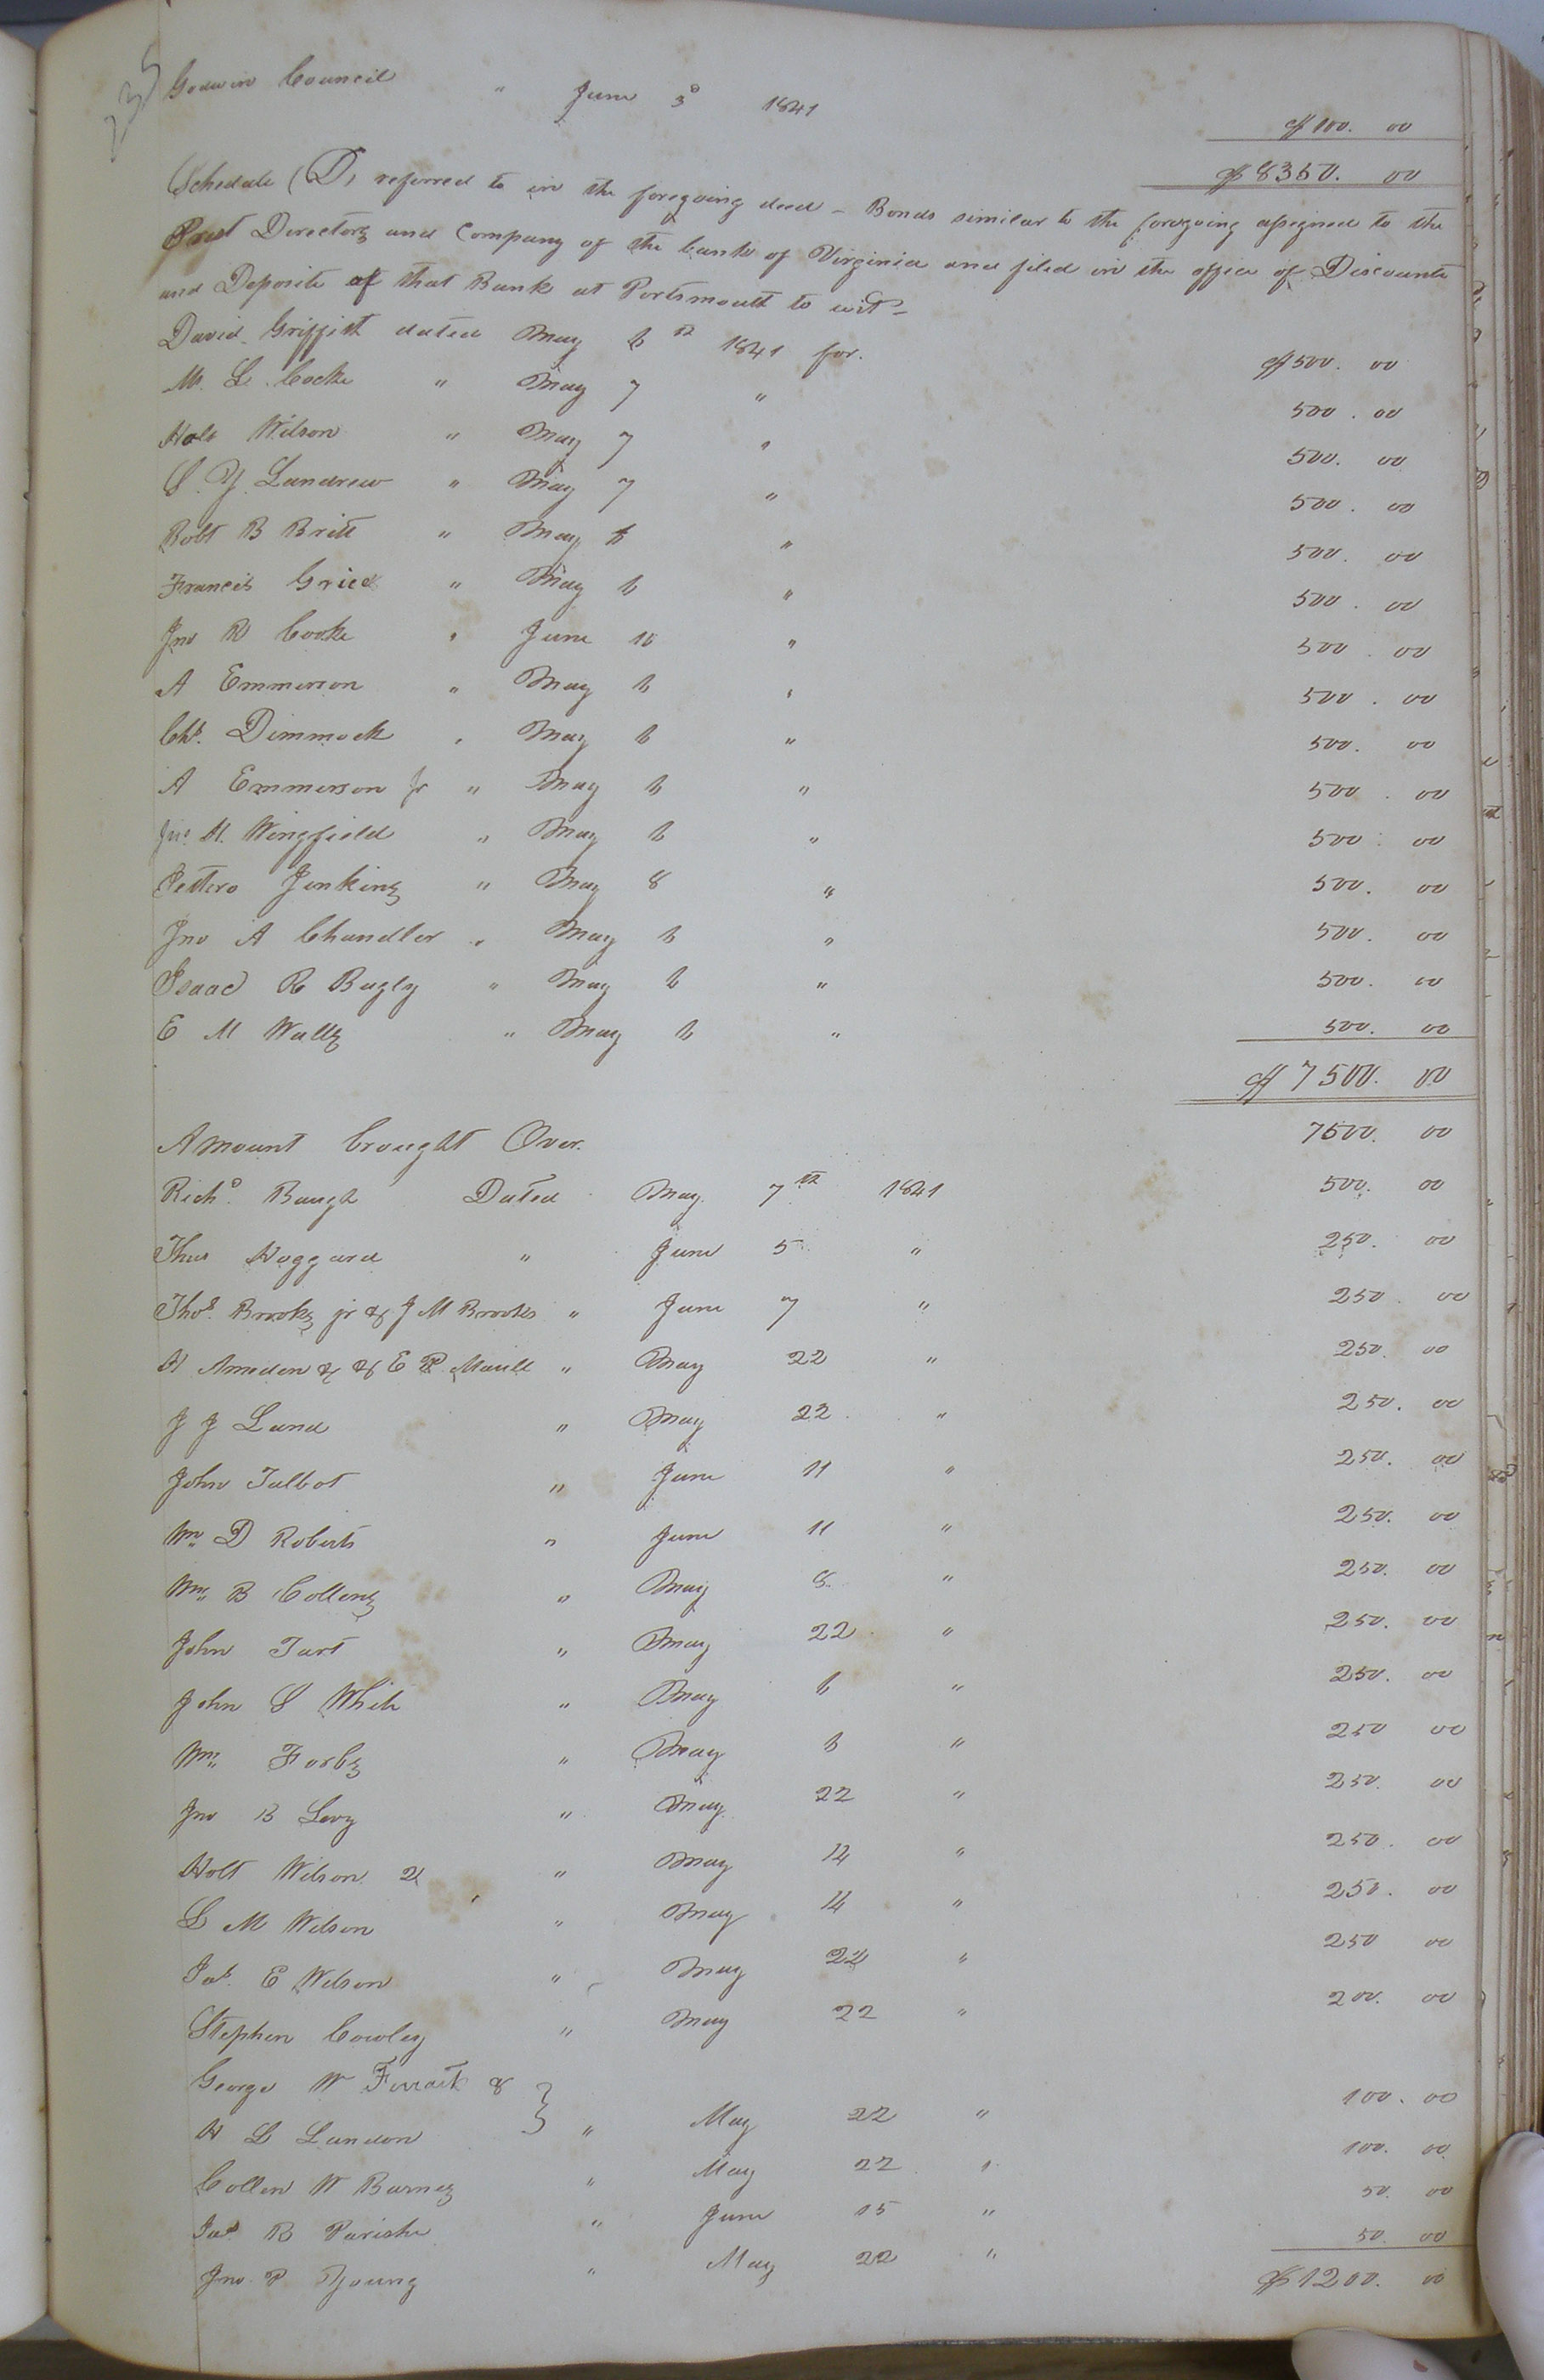 235
Godwin Council " June 3d 1841 $100. 00
$8350. 00
Schedule (D) referred to in the foregoing deed - Bonds similar to the foregoing assigned to the
Prest Directors and Company of the bank of Virginia and filed in the office of Discounts
and Deposite of that Bank at Portsmouth to wit -
David Griffith dated May 6th 1841 for. $500. 00
M. L. Cocke " May 7 " 500. 00
Holt Wilson " May 7 " 500. 00
S. Y. Landrew " May 7 " 500. 00
Robt B Britt " May 6 " 500. 00
Francis Grice " May 6 " 500. 00
Jno R Cooke " June 10 " 500. 00
A Emmerson " May 6 " 500. 00
Chs. Dimmock " May 6 " 500. 00
A Emmerson Jr " May 6 " 500. 00
Jno. H. Wingfield " May 6 " 500. 00
Jenkins " May 8 " 500. 00
Jno A Chandler " May 6 " 500. 00
Isaac R Bagly " May 6 " 500. 00
E M Watts " May 6 " 500. 00
$7500. 00
Amount brought Over. 7500. 00
Richd. Baugh Dated May 7th 1841 500. 00
Thos Hoggard " June 5 " 250. 00
Thos. Brooks jr & J M Brooks " June 7 " 250. 00
H & E P. " May 22 " 250. 00
J J Land " May 22 " 250. 00
John Talbot " June 11 " 250. 00
Wm D Roberts " June 11 " 250. 00
Wm. B Collens " May 8 " 250. 00
John Tart " May 22 " 250. 00
John S White " May 6 " 250. 00
Wm. Forbs " May 6 " 250 00
Jno B Levy " May 22 " 250. 00
Holt Wilson " May 14 " 250. 00
L M Wilson " May 14 " 250. 00
Jas. E Wilson " May 22 " 250 00
Stephen Cowley " May 22 " 200. 00
George W &
H L Landon } " May 22 " 100. 00
Collen W Barnes " May 22 " 100. 00
Jas B Parish " June 15 " 50. 00
Jno. P Young " May 22 " 50. 00
$1200. 00